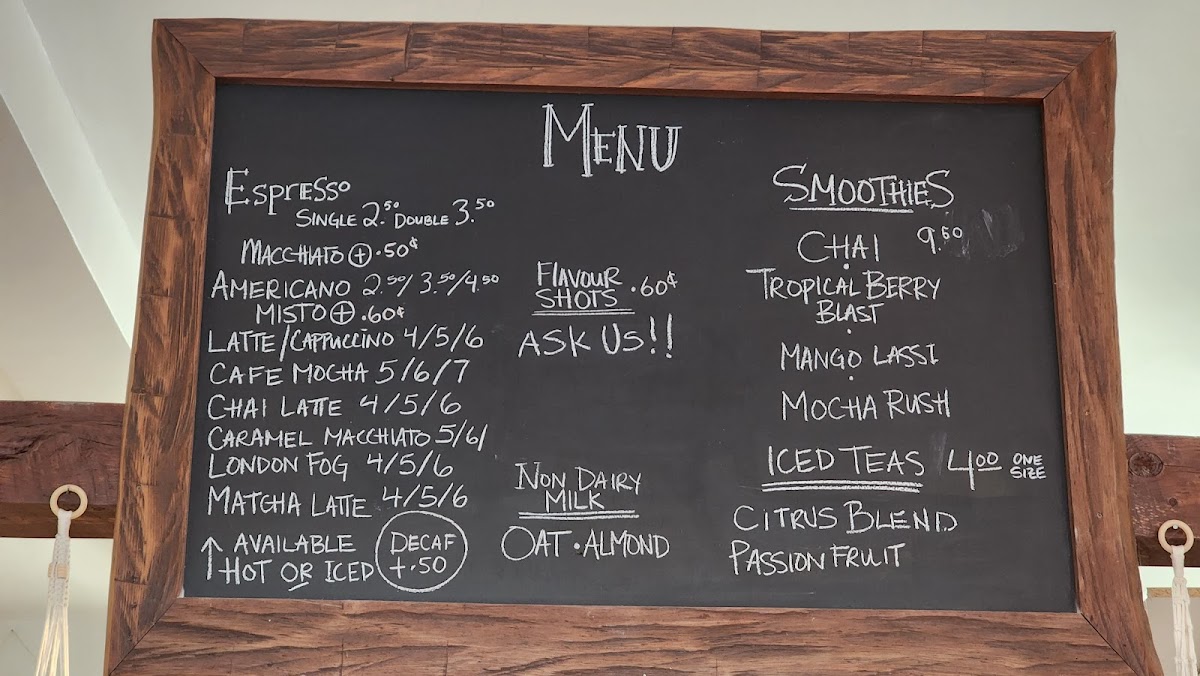 MENU
ESPRESSO
SINGLE 2.50 DOUBLE 3.50
MACCHIATO ⊕ .50¢
AMERICANO 2.50/3.50/4.50
MISTO ⊕ .60¢
LATTE/CAPPUCCINO 4/5/6
CAFE MOCHA 5/6/7
CHAI LATTE 4/5/6
CARAMEL MACCHIATO 5/6/
LONDON FOG 4/5/6
MATCHA LATTE 4/5/6
↑ AVAILABLE
HOT OR ICED
DECAF
+.50
FLAVOUR
SHOTS .60¢
ASK US!!
NON DAIRY
MILK
OAT · ALMOND
SMOOTHIES
CHAI 9.50
TROPICAL BERRY
BLAST
MANGO LASSI
MOCHA RUSH
ICED TEAS 4.00 ONE
SIZE
CITRUS BLEND
PASSION FRUIT